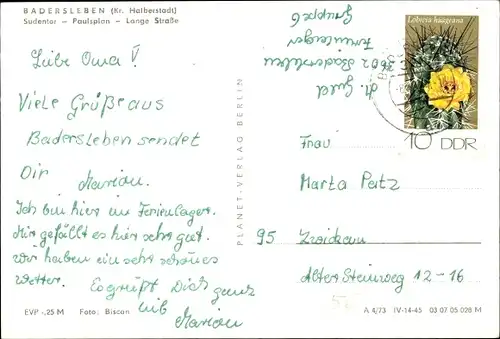 BADERSLEBEN (Kr. Halberstadt)
Sudentor – Paulsplan – Lange Straße
Liebe Oma!
Viele Grüße aus
Badersleben sendet
Dir
Marion.
Ich bin hier im Ferienlager.
Mir gefällt es hier sehr gut.
Wir haben ein sehr schönes
Wetter.
Es grüßt Dich ganz
lieb
Marion
EVP -,25 M Foto: Biscan
PLANET-VERLAG BERLIN
3602 Badersleben
Ferienlager
Gruppe 6
Lobivia haageana
10 DDR
Frau
Marta Patz
95 Zwickau
Alter Steinweg 12-16
A 4/73 IV-14-45 03 07 05 028 M